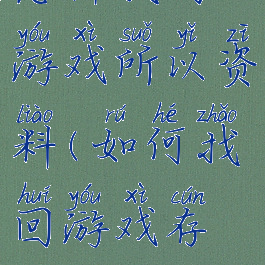 yóu xì suǒ yǐ zī
游戏所以资
liào rú hé zhǎo
料(如何找
huí yóu xì cún
回游戏存